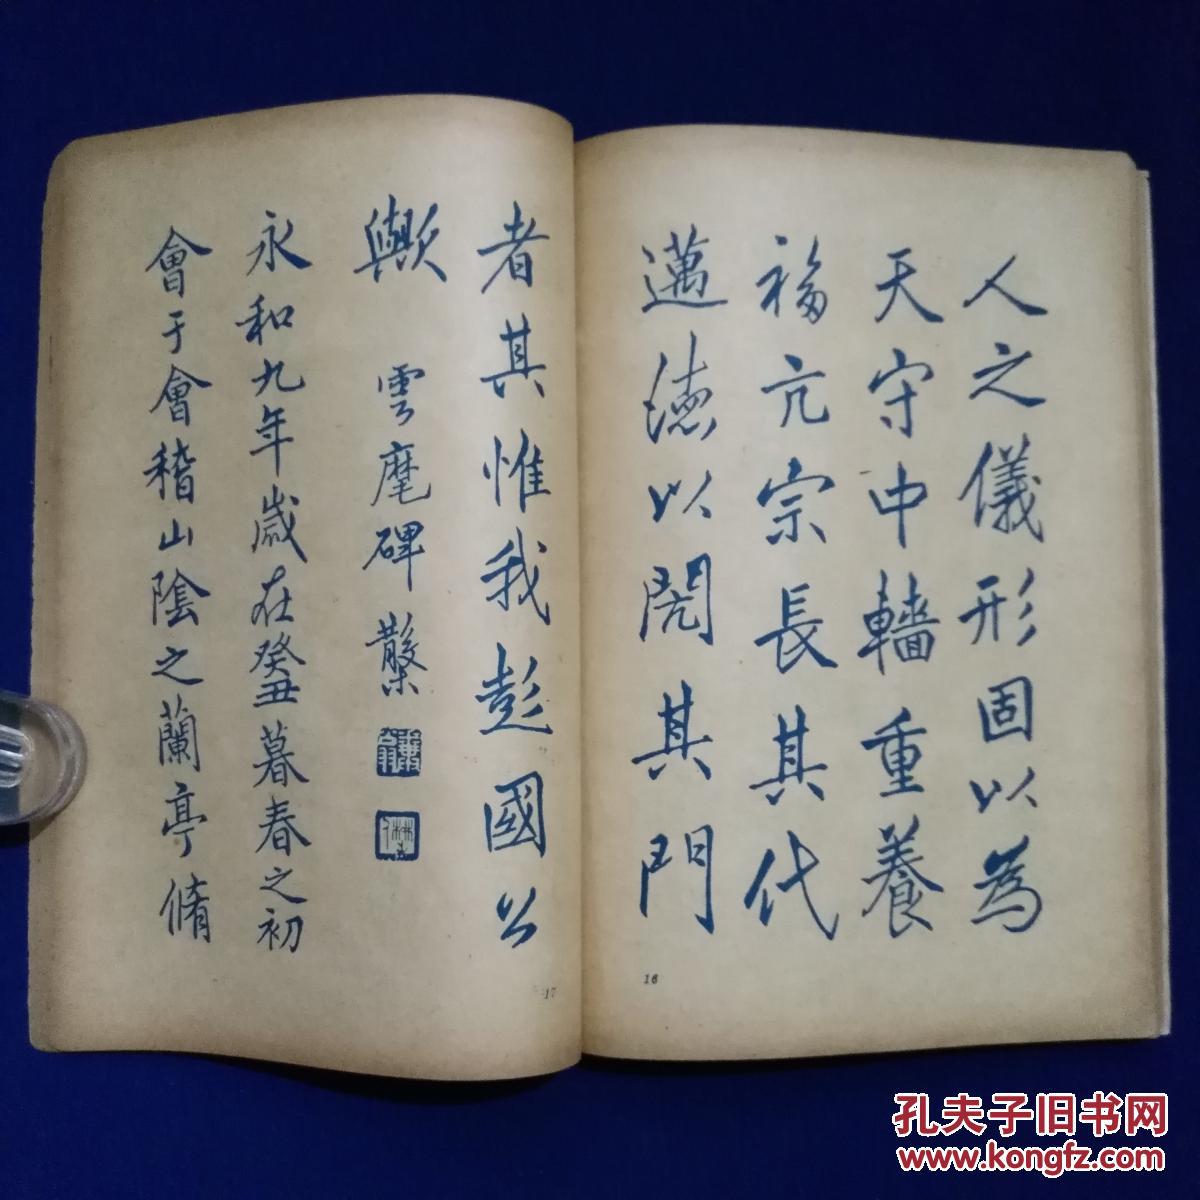 人之儀形固以為
天守中轖重養
福亢宗長其代
邁德以閌其門
16
者其惟我彭國公
歟
雲麾碑 繄
永和九年歲在癸丑暮春之初
會于會稽山陰之蘭亭脩
17
孔夫子旧书网
www.kongfz.com